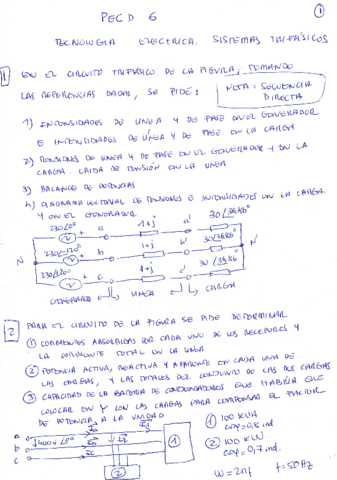 PECD 6
1
TECNOLOGIA ELECTRICA. SISTEMAS TRIFÁSICOS
1 EN EL CIRCUITO TRIFÁSICO DE LA FIGURA, TOMANDO
LAS REFERENCIAS DADAS, SE PIDE:
NOTA = SECUENCIA
DIRECTA
1) INTENSIDADES DE LÍNEA Y DE FASE EN EL GENERADOR
E INTENSIDADES DE LÍNEA Y DE FASE EN LA CARGA
2) TENSIONES DE LINEA Y DE FASE EN EL GENERADOR Y EN LA
CARGA. CAIDA DE TENSIÓN EN LA LINEA
3) BALANCE DE POTENCIAS
4) DIAGRAMA VECTORIAL DE TENSIONES E INTENSIDADES EN LA CARGA
Y EN EL GENERADOR
230∠0° a 1+j a' 30∠36.86°
N 230∠-120° b 1+j b' 30∠36.86° N'
230∠120° c 1+j c' 30∠36.86°
GENERADOR LINEA CARGA
2 PARA EL CIRCUITO DE LA FIGURA SE PIDE DETERMINAR
1 CORRIENTES ABSORBIDAS POR CADA UNO DE LOS RECEPTORES Y
LA CORRIENTE TOTAL EN LA LINEA
2 POTENCIA ACTIVA, REACTIVA Y APARENTE EN CADA UNA DE
LAS CARGAS, Y LAS TOTALES DEL CONJUNTO DE LAS DOS CARGAS
3 CAPACIDAD DE LA BATERIA DE CONDENSADORES QUE HABRIA QUE
COLOCAR EN Y CON LAS CARGAS PARA COMPENSAR EL FACTOR
DE POTENCIA A LA UNIDAD
a
b 400V∠0°
c
1
2
1 100 KVA
cosφ=0,8 ind
2 100 KW
cosφ=0,7 ind.
W=2πf f=50Hz